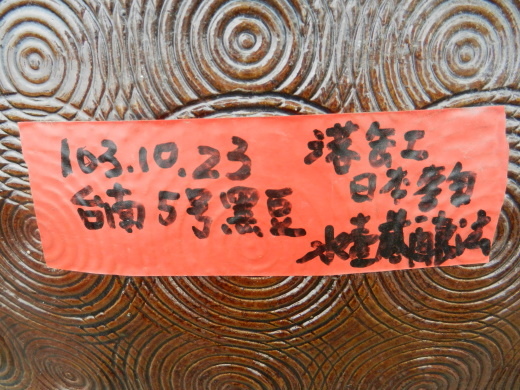 103.10.23
台南5号黑豆
落缸
日本
水釀法